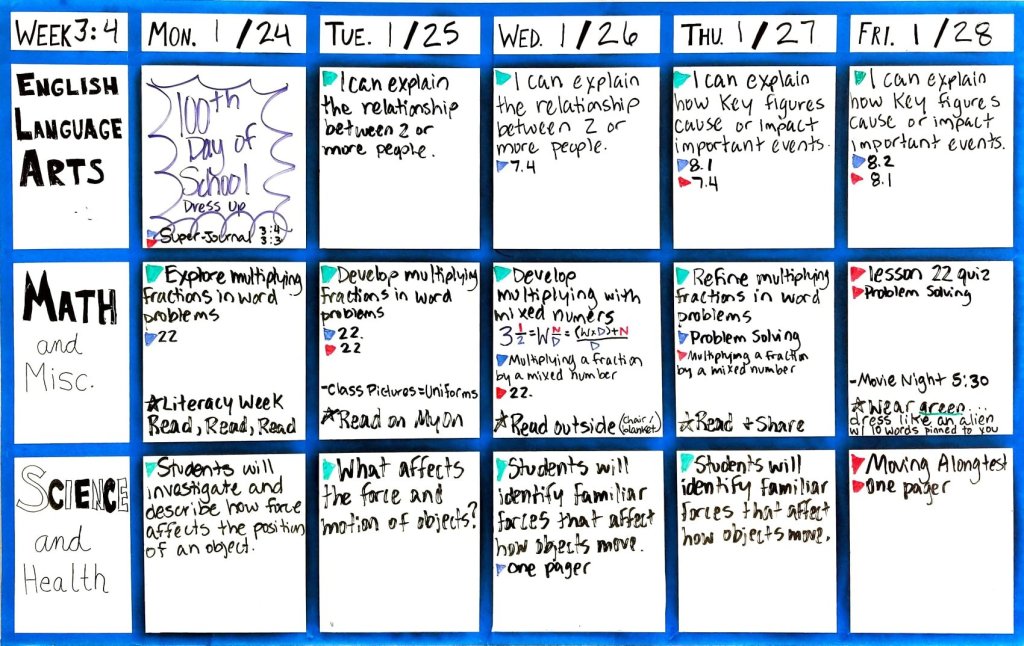 WEEK 3:4
MON. 1/24
TUE. 1/25
WED. 1/26
THU. 1/27
FRI. 1/28
ENGLISH
LANGUAGE
ARTS
100th
Day of
School
Dress Up
Super-Journal 3:4
3:3
I can explain
the relationship
between 2 or
more people.
I can explain
the relationship
between 2 or
more people.
7.4
I can explain
how Key figures
cause or impact
important events.
8.1
7.4
I can explain
how Key figures
cause or impact
important events.
8.2
8.1
MATH
and
Misc.
Explore multiplying
fractions in word
problems
22
☆Literacy Week
Read, Read, Read
Develop multiplying
fractions in word
problems
22.
22
-Class Pictures=Uniforms
☆Read on MyOn
Develop
multiplying with
mixed numers
3 1/2 = W N/D = (WxD)+N/D
Multiplying a fraction
by a mixed number
22.
☆Read outside (chair/
blanket)
Refine multiplying
fractions in word
problems
Problem Solving
Multiplying a fraction
by a mixed number
☆Read + Share
lesson 22 quiz
Problem Solving
-Movie Night 5:30
☆Wear green...
dress like an alien
w/ 10 words pinned to you
SCIENCE
and
Health
Students will
investigate and
describe how force
affects the position
of an object.
What affects
the force and
motion of objects?
Students will
identify familiar
forces that affect
how objects move.
one pager
Students will
identify familiar
forces that affect
how objects move.
Moving Along test
one pager